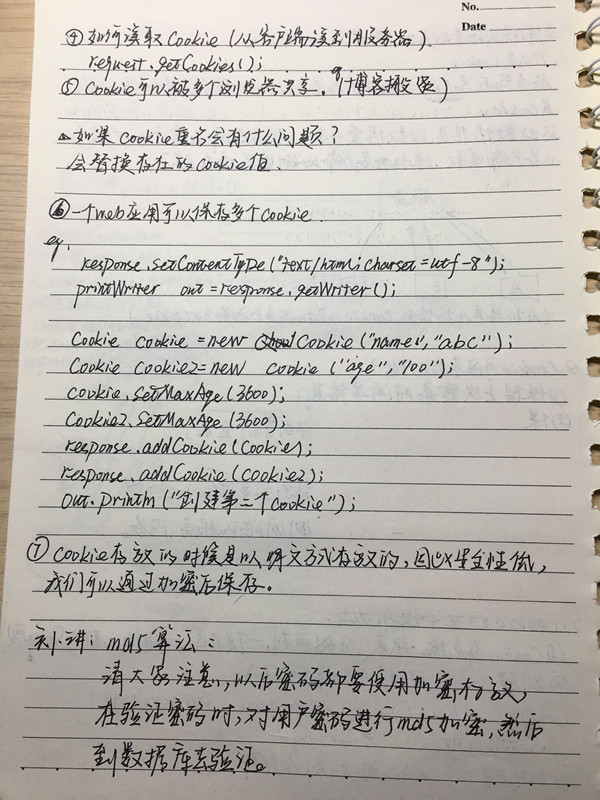 No.
Date
④ 如何读取Cookie (从客户端读到服务器)
request.getCookies();
⑤ Cookie可以被多个浏览器共享。(博客搬家)
△如果cookie重名会有什么问题?
会替换存在的cookie值.
⑥ 一个web应用可以保存多个cookie.
eg.
response.setContentType("text/html;charset=utf-8");
printWriter out=response.getWriter();
Cookie cookie=new Cookie("name","abc");
Cookie cookie2=new cookie("age","100");
cookie.setMaxAge(3600);
Cookie2.setMaxAge(3600);
response.addCookie(Cookie);
response.addCookie(Cookie2);
out.println("创建第二个cookie");
⑦ Cookie存放的时候是以明文方式存放的,因此安全性低,
我们可以通过加密后保存。
补讲:md5算法:
请大家注意,以后密码都要使用加密存放,
在验证密码时,对用户密码进行md5加密,然后
到数据库去验证。